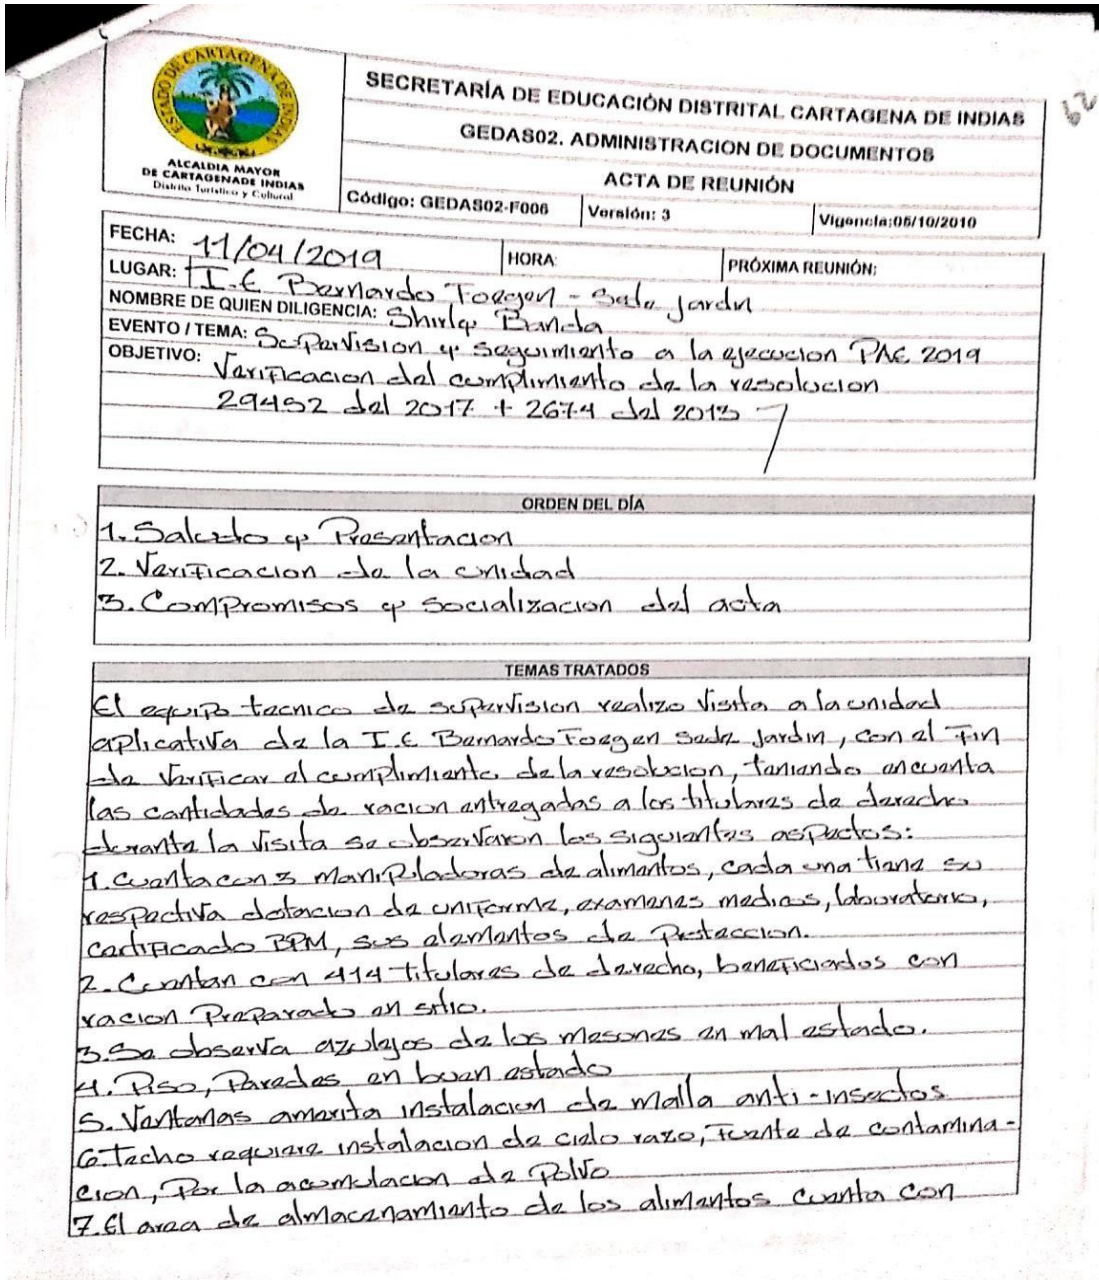 ESTADO DE CARTAGENA DE INDIAS
ALCALDIA MAYOR
DE CARTAGENADE INDIAS
Distrito Turístico y Cultural
SECRETARÍA DE EDUCACIÓN DISTRITAL CARTAGENA DE INDIAS
GEDAS02. ADMINISTRACION DE DOCUMENTOS
ACTA DE REUNIÓN
Código: GEDAS02-F006 Versión: 3 Vigencia:05/10/2010
62
FECHA: 11/04/2019 HORA: PRÓXIMA REUNIÓN:
LUGAR: I.E Bernardo Foegen - Sede Jardin
NOMBRE DE QUIEN DILIGENCIA: Shirly Banda
EVENTO / TEMA: Supervision y seguimiento a la ejecucion PAE 2019
OBJETIVO: Verificacion del cumplimiento de la resolucion
29452 del 2017 + 2674 del 2013
ORDEN DEL DÍA
1. Saludo y Presentacion
2. Verificacion de la unidad
3. Compromisos y socializacion del acta
TEMAS TRATADOS
El equipo tecnico de supervision realizo visita a la unidad
aplicativa de la I.E Bernardo Foegen sede Jardin, con el fin
de verificar el cumplimiento de la resolucion, teniendo encuenta
las cantidades de racion entregadas a los titulares de derecho
durante la visita se observaron los siguientes aspectos:
1. cuenta con 3 manipuladoras de alimentos, cada una tiene su
respectiva dotacion de uniforme, examenes medicos, laboratorio,
certificado BPM, sus elementos de Proteccion.
2. Cuentan con 414 titulares de derecho, beneficiados con
racion Preparado en sitio.
3. Se observa azulejos de los mesones en mal estado.
4. Piso, Paredes en buen estado
5. Ventanas amerita instalacion de malla anti-insectos
6. Techo requiere instalacion de cielo razo, Fuente de contamina-
cion, Por la acumulacion de Polvo
7. El area de almacenamiento de los alimentos cuenta con